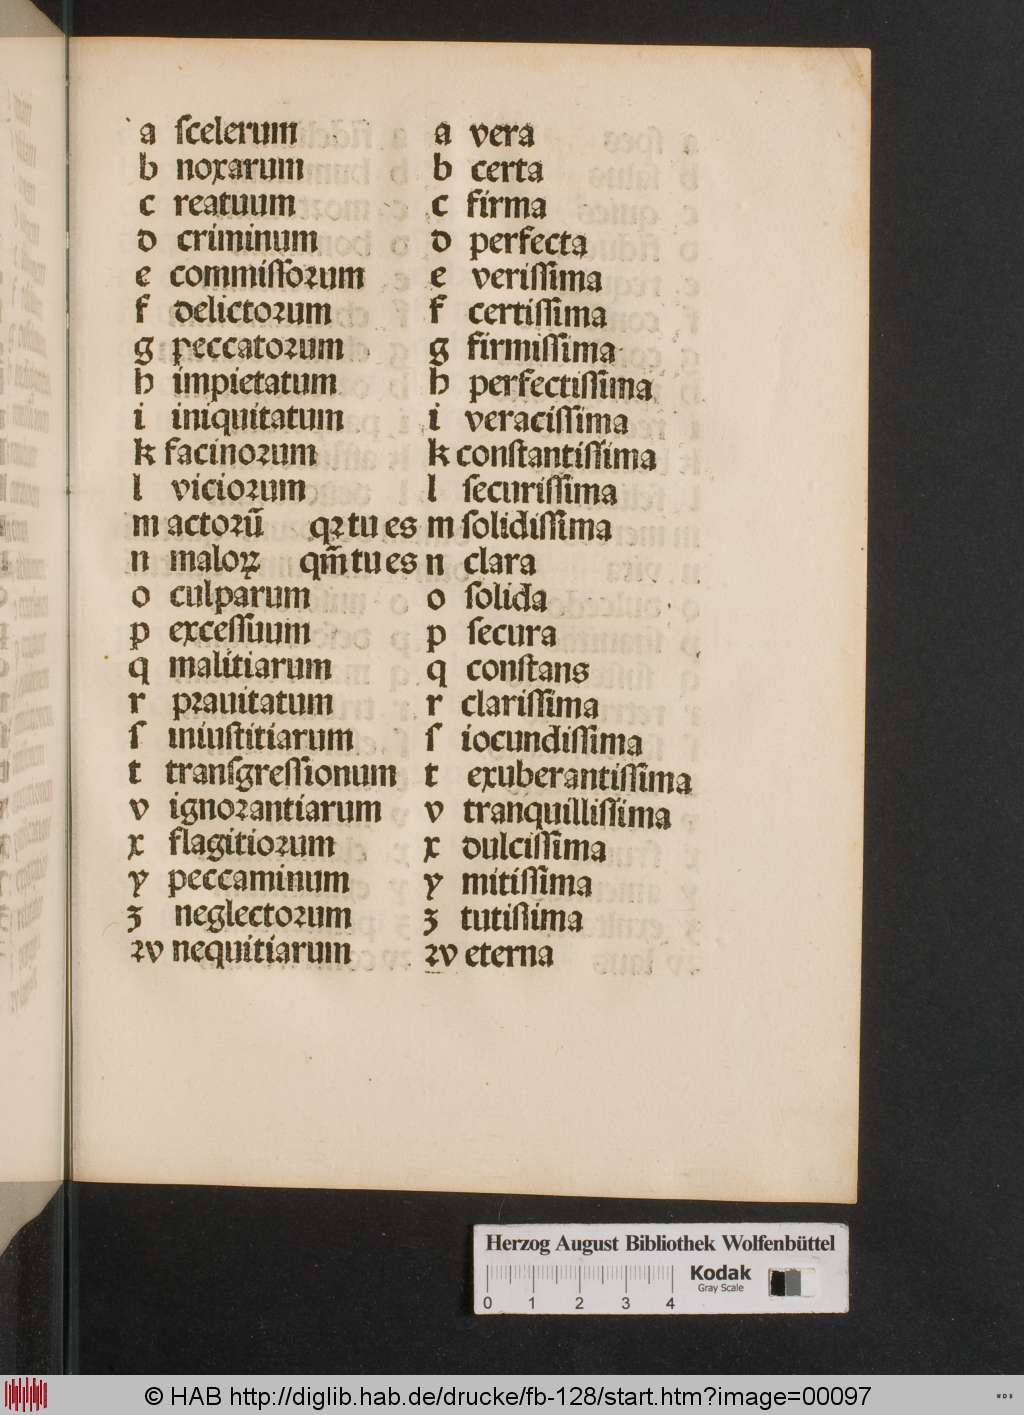 a ſcelerum a vera
b noxarum b certa
c reatuum c firma
d criminum d perfecta
e commiſſoꝛum e veriſſima
f delictoꝛum f certiſſima
g peccatoꝛum g firmiſſima
h impietatum h perfectiſſima
i iniquitatum i veraciſſima
k facinoꝛum k conſtantiſſima
l vicioꝛum l ſecuriſſima
m actoꝛū qꝛ tu es m ſolidiſſima
n maloꝝ qm̄ tu es n clara
o culparum o ſolida
p exceſſuum p ſecura
q malitiarum q conſtans
r pꝛauitatum r clariſſima
ſ iniuſtitiarum ſ iocundiſſima
t tranſgreſſionum t exuberantiſſima
v ignoꝛantiarum v tranquilliſſima
x flagitioꝛum x dulciſſima
y peccaminum y mitiſſima
ʒ neglectoꝛum ʒ tutiſſima
ꝛv nequitiarum ꝛv eterna
Herzog August Bibliothek Wolfenbüttel
Kodak
Gray Scale
0 1 2 3 4
© HAB http://diglib.hab.de/drucke/fb-128/start.htm?image=00097
WDB